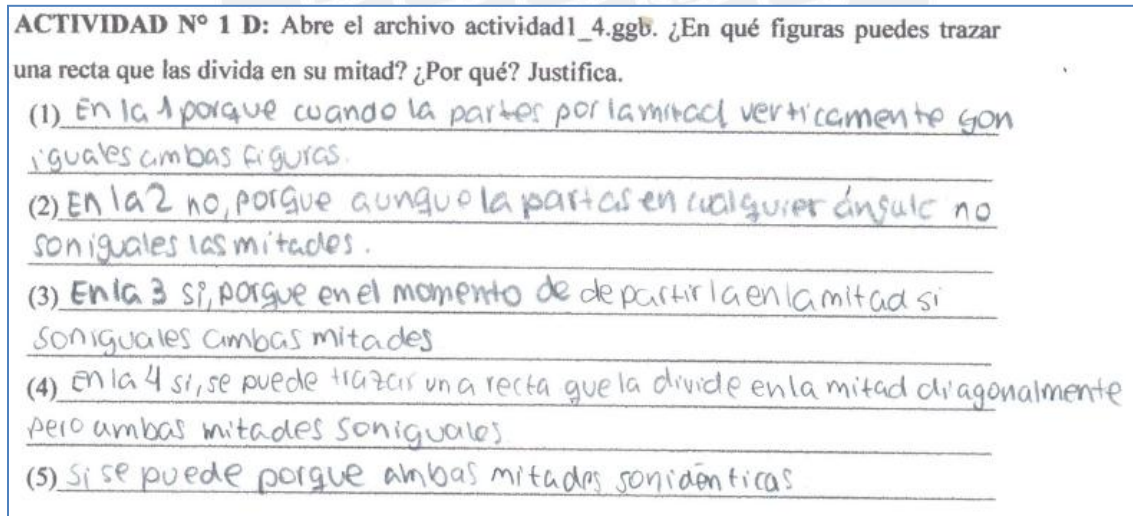 ACTIVIDAD Nº 1 D: Abre el archivo actividad1_4.ggb. ¿En qué figuras puedes trazar
una recta que las divida en su mitad? ¿Por qué? Justifica.
(1) En la 1 porque cuando la partes por la mitad verticamente son
iguales ambas figuras.
(2) En la 2 no, porque aunque la partas en cualquier ángulo no
son iguales las mitades.
(3) En la 3 si, porque en el momento de departirla en la mitad si
son iguales ambas mitades
(4) En la 4 si, se puede trazar una recta que la divide en la mitad diagonalmente
pero ambas mitades son iguales
(5) Si se puede porque ambas mitades son idénticas